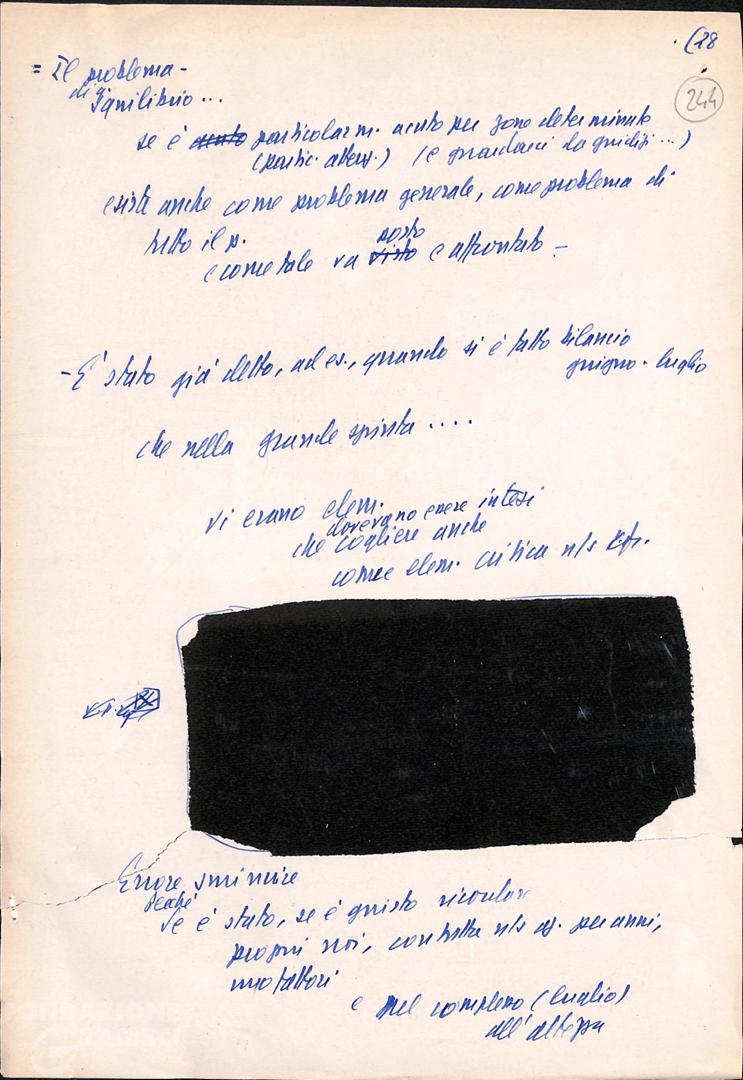 (28
244
= Il problema -
di q.
squilibrio...
se è acuto particolarm. acuto per zone determinate
(partic. attenz.) (e guardarci da giudizi...)
esiste anche come problema generale, come problema di
tutto il p.
posto
e come tale va visto e affrontato -
- È stato già detto, ad es., quando si è fatto bilancio
giugno - luglio
che nella grande spinta ....
vi erano elem.
dovevano essere intesi
che cogliere anche
come elem. critica n/s
Errore sminuire
Perché
se è stato, se è giusto ricordare
proprii noi, con tutta n/s az. per anni,
e nel complesso (luglio)
all'altezza